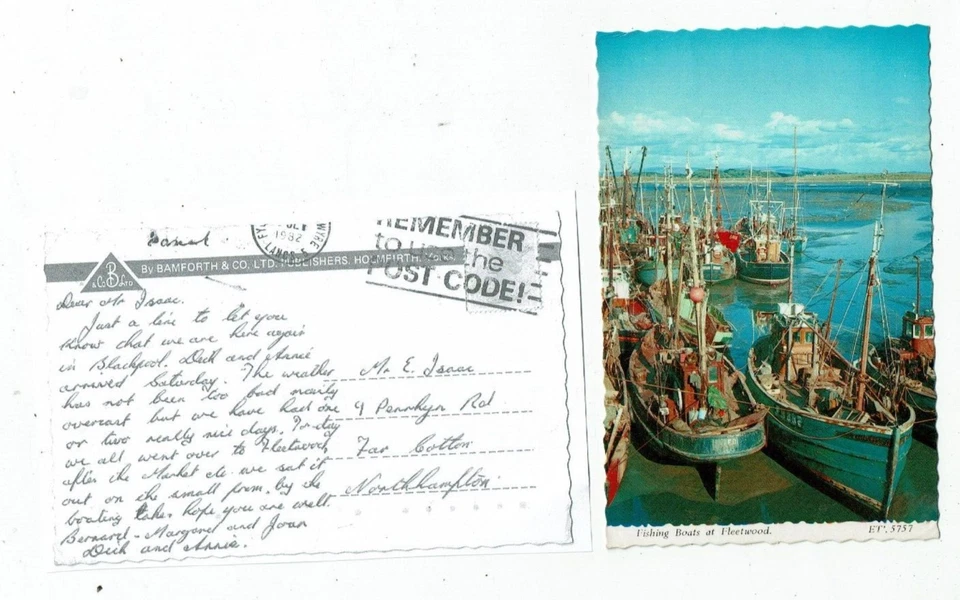 Casual
1982
FYLDE
WYRE
LANCS
REMEMBER
to use the
POST CODE!
B
& Co LTD
By BAMFORTH & CO. LTD. PUBLISHERS, HOLMFIRTH,
Dear Mr Isaac.
Just a line to let you
know that we are here again
in Blackpool. Dick and Annie
arrived Saturday. The weather
has not been too bad mainly
overcast but we have had one
or two really nice days. To-day
we all went over to Fleetwood
after the Market etc. we sat it
out on the small prom. by the
boating lakes hope you are well.
Bernard - Margaret and Joan
Dick and Annie.
Mr E. Isaac
9 Penrhyn Rd
Far Cotton
Northampton.
Fishing Boats at Fleetwood.
ET. 5757